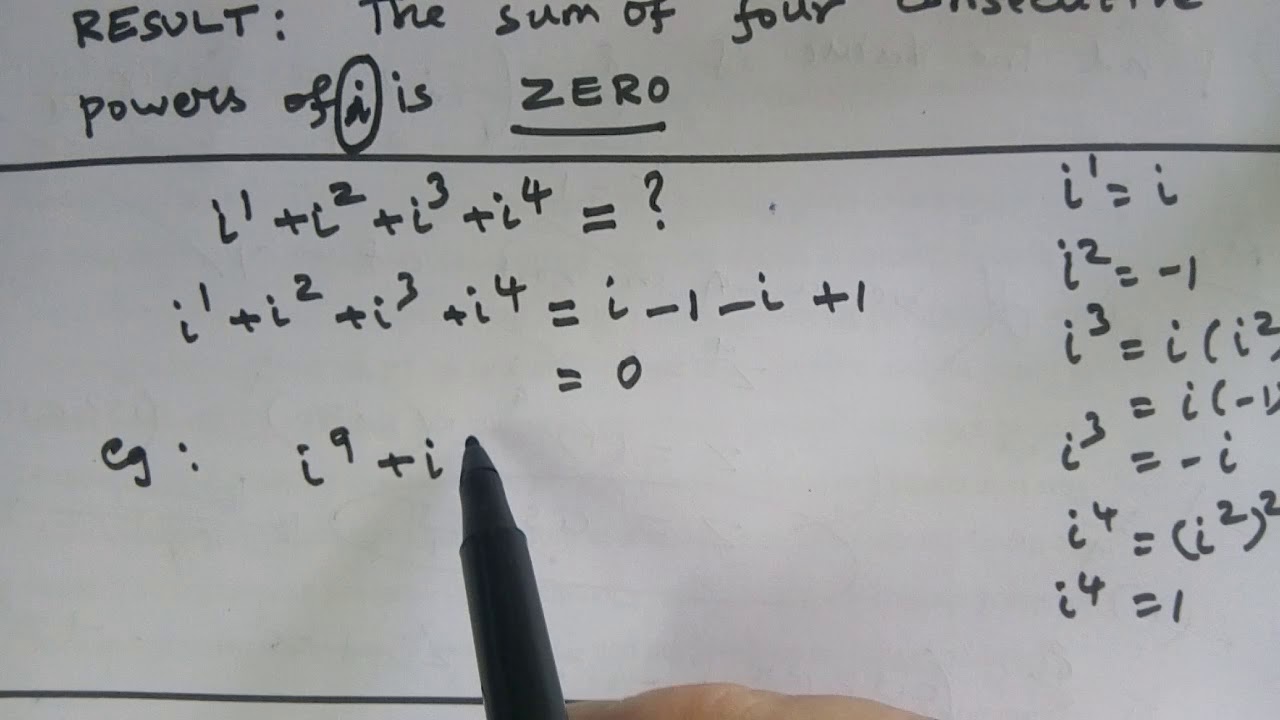 RESULT: The sum of four consecutive
powers of i is ZERO
i¹ + i² + i³ + i⁴ = ?
i¹ + i² + i³ + i⁴ = i - 1 - i + 1
= 0
eg: i⁹ + i
i¹ = i
i² = -1
i³ = i(i²
= i(-1)
i³ = -i
i⁴ = (i²)²
i⁴ = 1